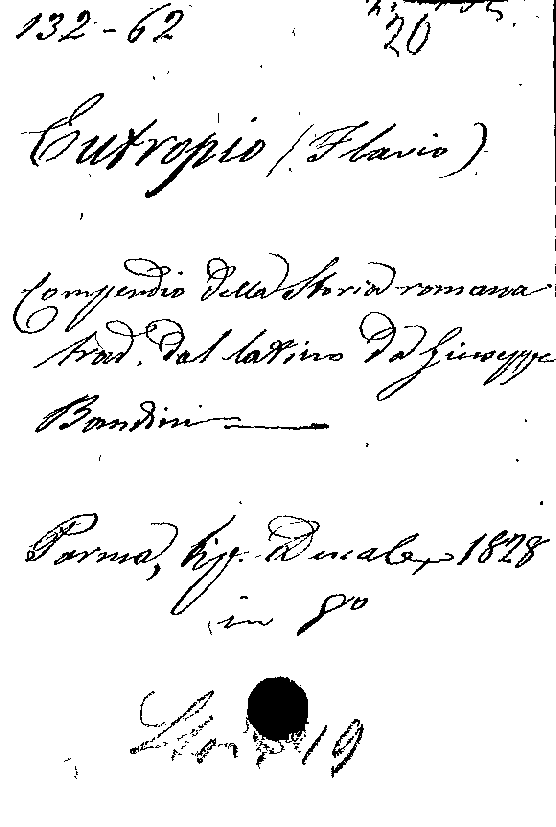 132-62
20
Eutropio (Flavio)
Compendio della Storia romana
trad. dal latino da Giuseppe
Bandini
Parma, tip. Ducale, 1828
in 8º
19